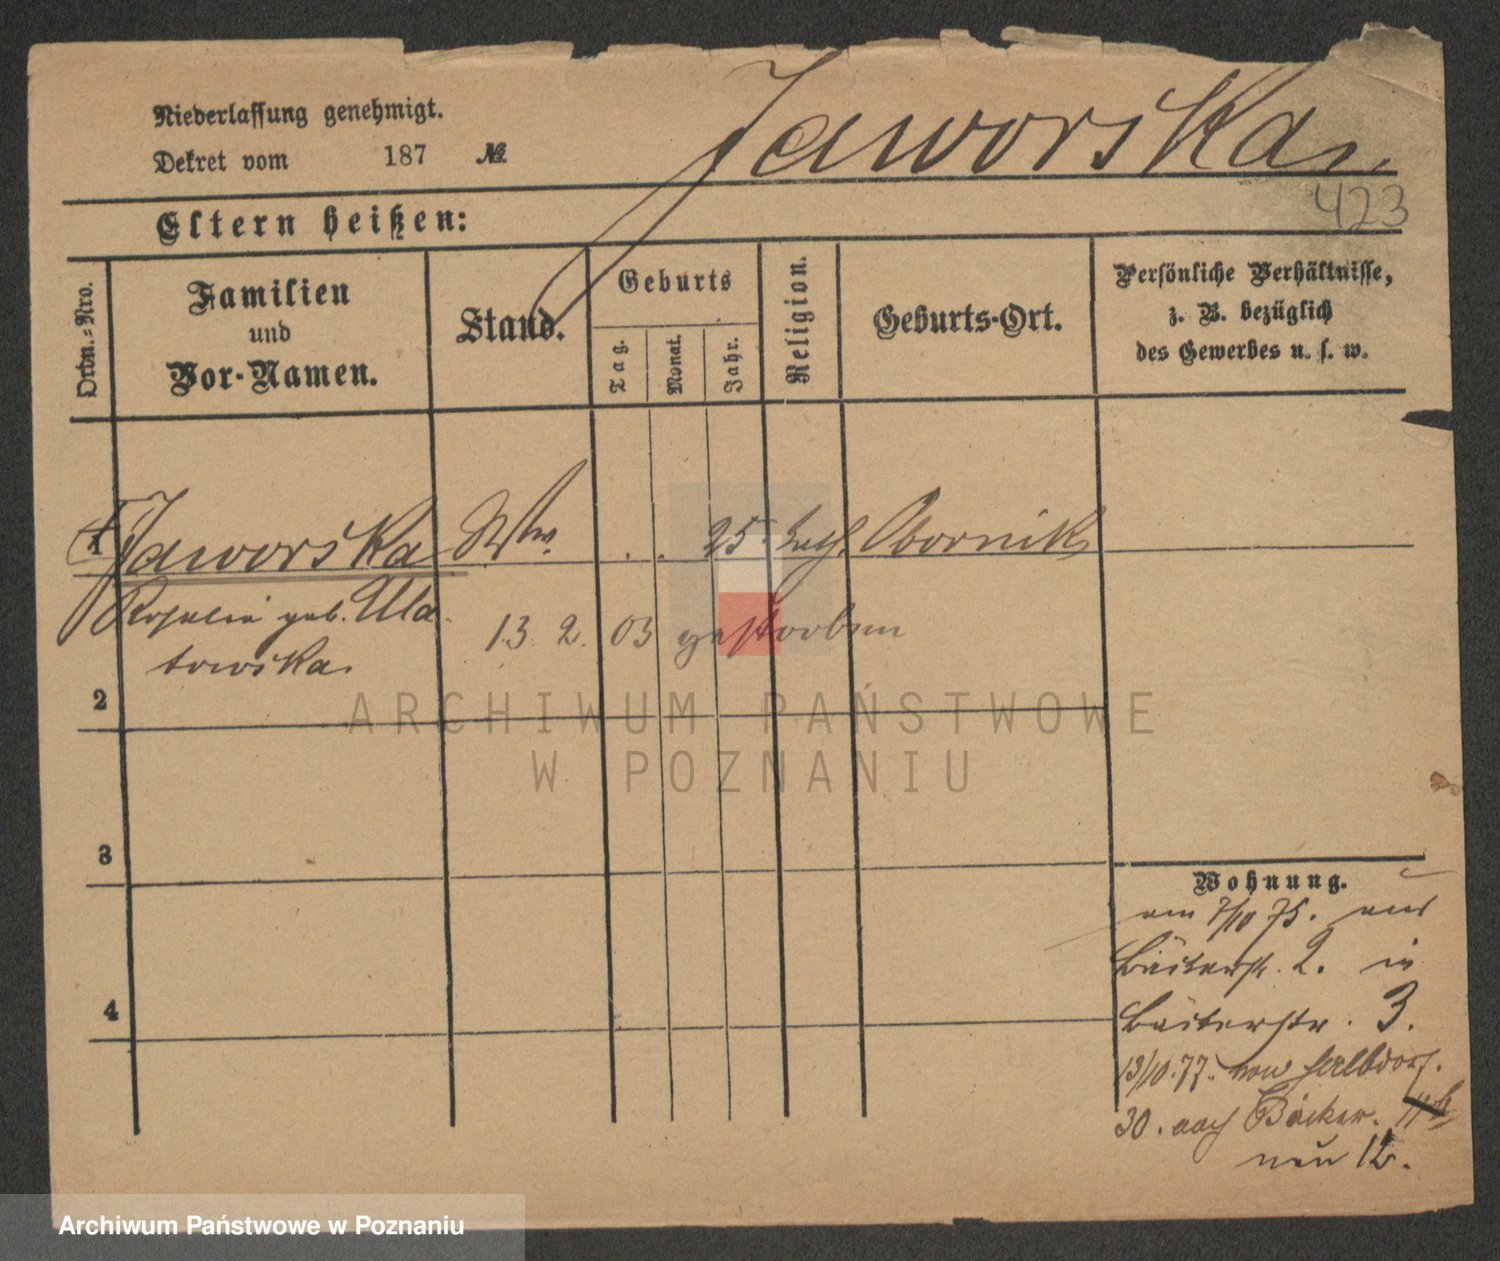 Niederlassung genehmigt.
Dekret vom 187 №
Jaworska.
423
Eltern heißen:
Ordn.-Nro.
Familien
und
Vor-Namen.
Stand.
Geburts
Tag.
Monat.
Jahr.
Religion.
Geburts-Ort.
Persönliche Verhältnisse,
z. B. bezüglich
des Gewerbes u. s. w.
1 Jaworska Ww. . . 25. kath. Obornik
Rosalie geb. Ula
towska. 13. 2. 03 gestorben
2
3
4
Wohnung.
am 7/10 75. aus
2. in
3.
13/10.77. von Halbdorf.
30. nach Bäcker.
neu 12.
ARCHIWUM PAŃSTWOWE
W POZNANIU
Archiwum Państwowe w Poznaniu